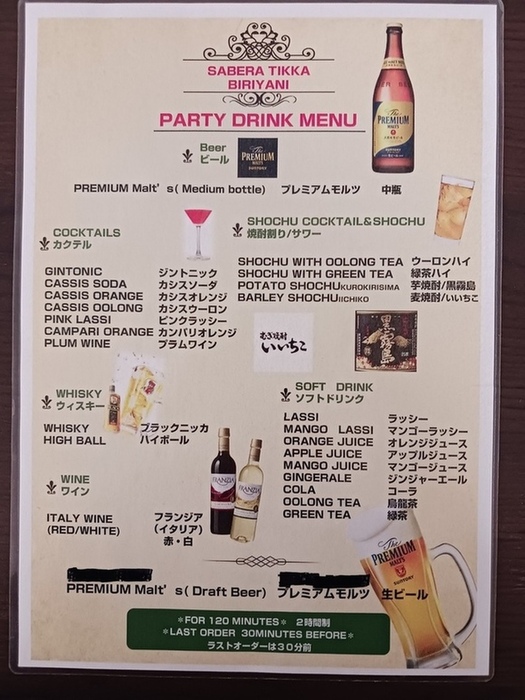 SABERA TIKKA
BIRIYANI
PARTY DRINK MENU
Beer
ビール
The PREMIUM MALT'S SUNTORY
PREMIUM Malt's( Medium bottle) プレミアムモルツ 中瓶
COCKTAILS
カクテル
GINTONIC ジントニック
CASSIS SODA カシスソーダ
CASSIS ORANGE カシスオレンジ
CASSIS OOLONG カシスウーロン
PINK LASSI ピンクラッシー
CAMPARI ORANGE カンパリオレンジ
PLUM WINE プラムワイン
SHOCHU COCKTAIL&SHOCHU
焼酎割り/サワー
SHOCHU WITH OOLONG TEA ウーロンハイ
SHOCHU WITH GREEN TEA 緑茶ハイ
POTATO SHOCHU KUROKIRISIMA 芋焼酎/黒霧島
BARLEY SHOCHU IICHIKO 麦焼酎/いいちこ
むぎ焼酎
いいちこ
黒霧島
WHISKY
ウィスキー
WHISKY ブラックニッカ
HIGH BALL ハイボール
WINE
ワイン
ITALY WINE フランジア
(RED/WHITE) (イタリア)
赤・白
FRANZIA
FRANZIA
SOFT DRINK
ソフトドリンク
LASSI ラッシー
MANGO LASSI マンゴーラッシー
ORANGE JUICE オレンジジュース
APPLE JUICE アップルジュース
MANGO JUICE マンゴージュース
GINGERALE ジンジャーエール
COLA コーラ
OOLONG TEA 烏龍茶
GREEN TEA 緑茶
The PREMIUM MALT'S SUNTORY
PREMIUM Malt's( Draft Beer) プレミアムモルツ 生ビール
*FOR 120 MINUTES* 2時間制
*LAST ORDER 30MINUTES BEFORE*
ラストオーダーは30分前